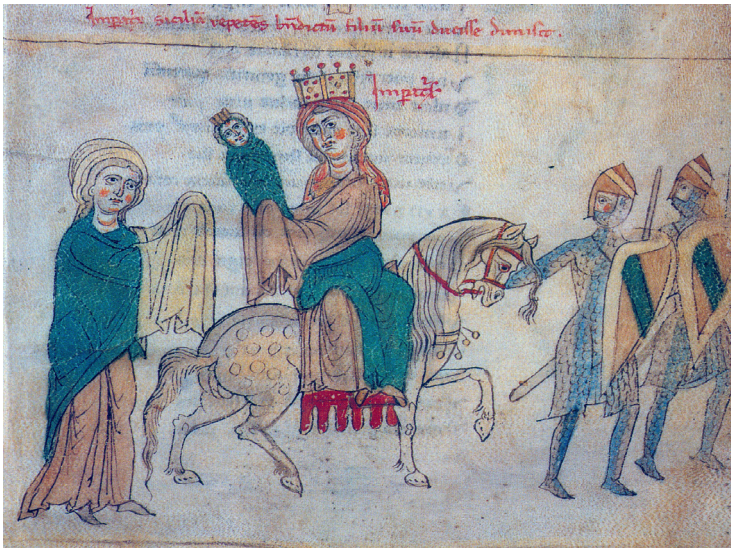 Imp̃atⁱx siciliã repetẽs bñdictũ filiũ suũ ducisse dimisit.
Imp̃atⁱx